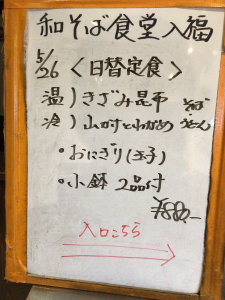 和そば食堂入福
5/26 <日替定食>
温) きざみ昆布 そば
冷) 山かけとわかめ うどん
・おにぎり(玉子)
・小鉢 2品付
¥880-
入口こちら